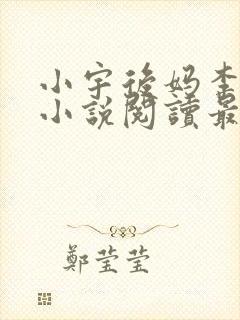 小宇後妈李
小說閱讀最
鄭莹莹